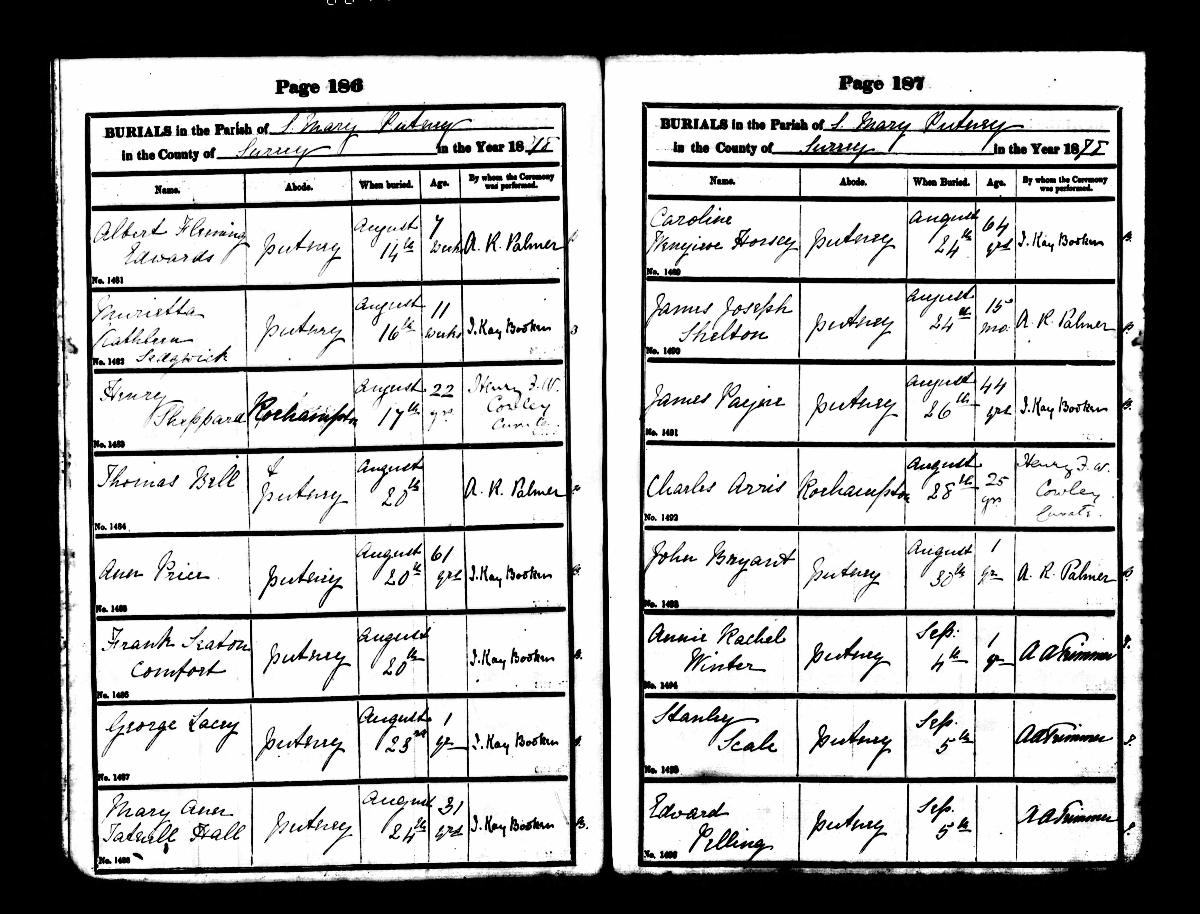 Page 186
BURIALS in the Parish of S. Mary Putney
in the County of Surrey in the Year 18
Name. Abode. When buried. Age. By whom the Ceremony was performed.
Albert Fleming Edwards Putney August 14th 7 weeks A. R. Palmer
No. 1481
Kathleen Sedgwick Putney August 16th 11 weeks J. Kay Booker
No. 1482
Henry Sheppard Roehampton August 17th 22 yrs Henry F. W. Cowley Curate
No. 1483
Thomas Bell Putney August 20th A. R. Palmer
No. 1484
Ann Price Putney August 20th 61 yrs J. Kay Booker
No. 1485
Frank Seaton Comfort Putney August 20th J. Kay Booker
No. 1486
George Lacey Putney August 23rd 1 yr J. Kay Booker
No. 1487
Mary Ann Hall Putney August 24th 31 yrs J. Kay Booker
No. 1488
Page 187
BURIALS in the Parish of S. Mary Putney
in the County of Surrey in the Year 18
Name. Abode. When Buried. Age. By whom the Ceremony was performed.
Caroline Horsey Putney August 24th 64 yrs J. Kay Booker
No. 1489
James Joseph Shelton Putney August 24th 15 mo. A. R. Palmer
No. 1490
James Putney August 26th 44 yrs J. Kay Booker
No. 1491
Charles Arris Roehampton August 28th 25 yrs Henry F. W. Cowley Curate.
No. 1492
John Bryant Putney August 30th 1 yr A. R. Palmer
No. 1493
Annie Rachel Winter Putney Sep. 4th 1 yr A A Trimmer
No. 1494
Stanley Scale Putney Sep. 5th A A Trimmer
No. 1495
Edward Pelling Putney Sep. 5th A A Trimmer
No. 1496